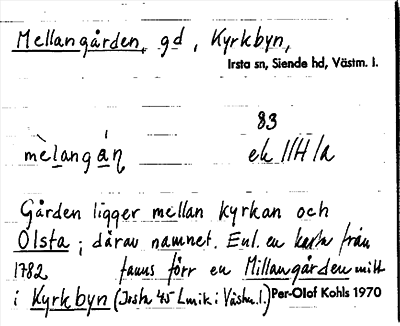 Mellangården, gd, Kyrkbyn,
Irsta sn, Siende hd, Västm. l.
83
mèlangán̥ ek 11H1a
Gården ligger mellan kyrkan och
Olsta; därav namnet. Enl. en karta från
1782 fanns förr en Millangården mitt
i Kyrkbyn (Irsta 45 Lmik i Västm. l.) Per-Olof Kohls 1970